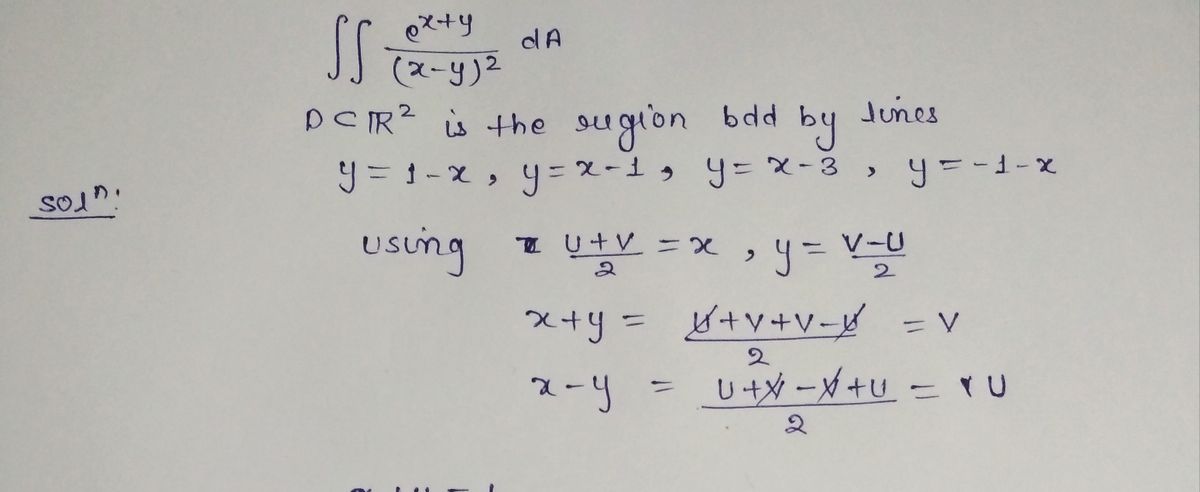 ∬ e^{x+y} / (x-y)^2 dA
D ⊂ ℝ^2 is the region bdd by lines
y = 1-x , y = x-1 , y = x-3 , y = -1-x
sol^n:
using u+v / 2 = x , y = v-u / 2
x+y = u+v+v-u / 2 = v
x-y = u+v-v+u / 2 = u